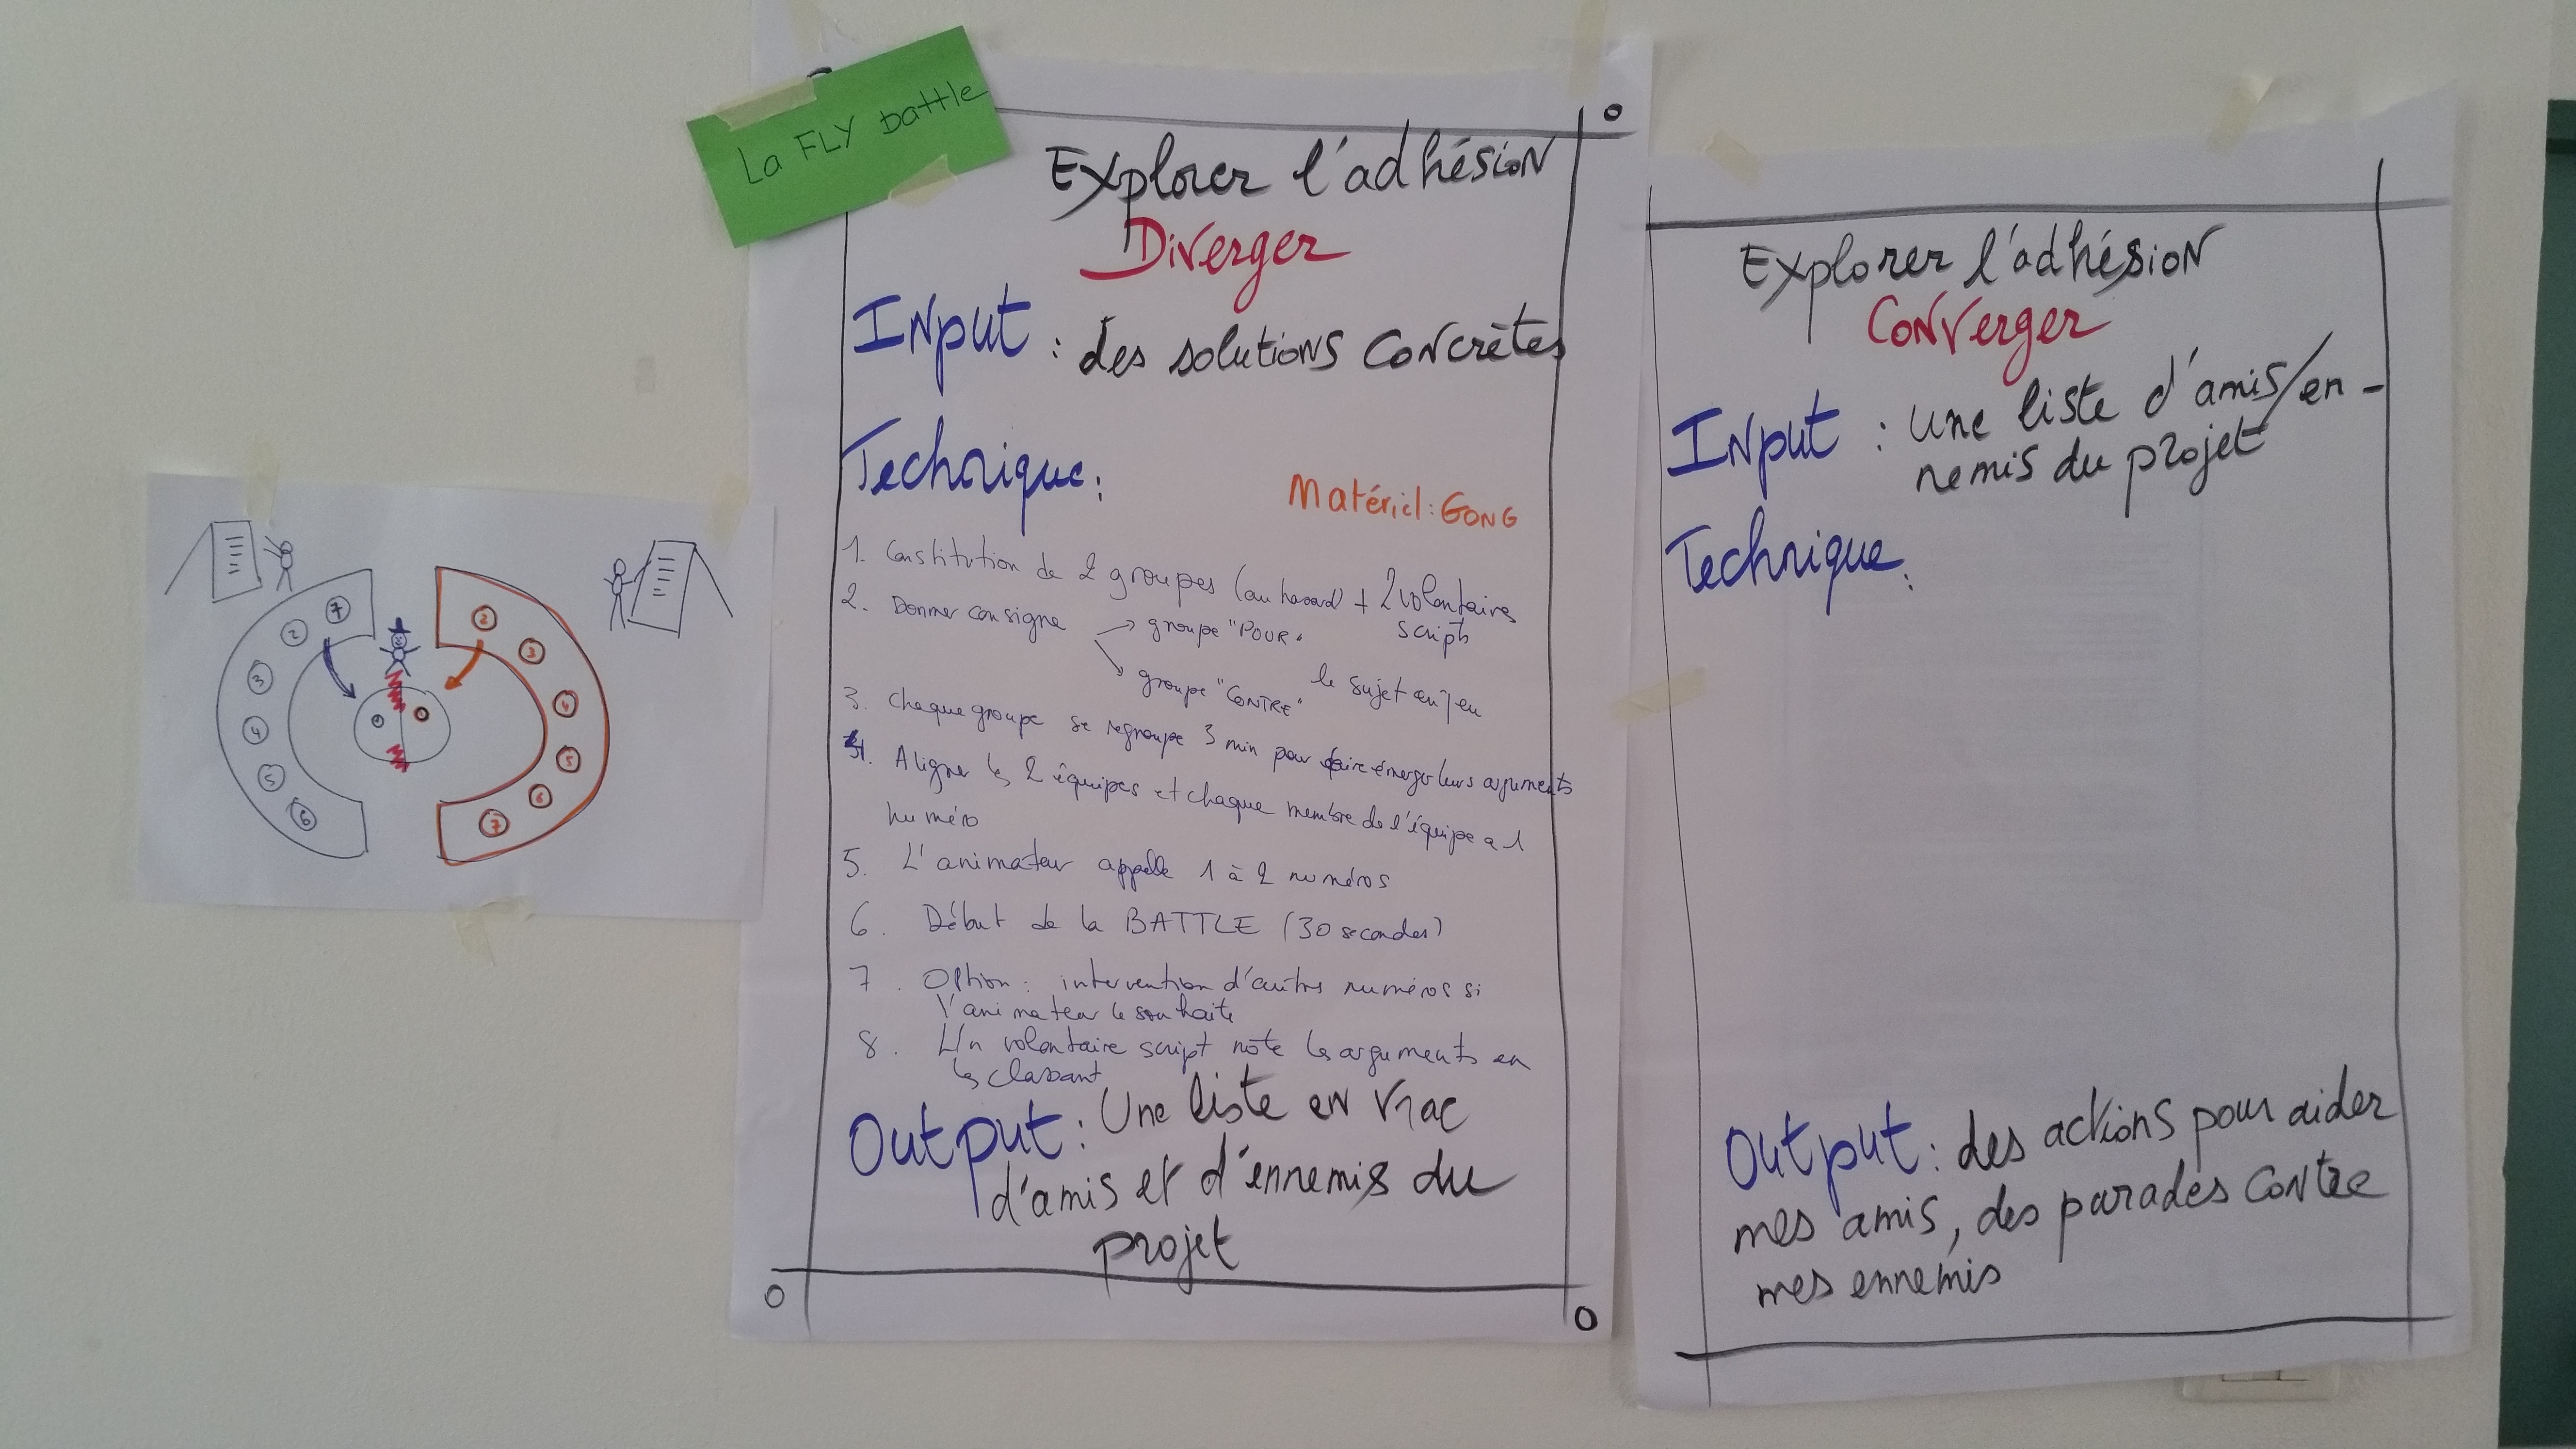 La FLY battle
Explorer l'adhésion
Diverger
INput : des solutions concrètes
Technique :
Matériel : GONG
1. Constitution de 2 groupes (au hasard) + 2 volontaires
scripts
2. Donner consigne → groupe "POUR"
→ groupe "CONTRE" le sujet en jeu
3. Chaque groupe se regroupe 3 min pour faire émerger leurs arguments
4. Aligner les 2 équipes et chaque membre de l'équipe a 1
numéro
5. L'animateur appelle 1 à 2 numéros
6. Début de la BATTLE (30 secondes)
7. Option : intervention d'autres numéros si
l'animateur le souhaite
8. Un volontaire script note les arguments en
les classant
Output : Une liste en vrac
d'amis et d'ennemis du
projet
Explorer l'adhésion
Converger
INput : une liste d'amis/en-
nemis du projet
Technique :
Output : des actions pour aider
mes amis, des parades contre
mes ennemis
7
2
3
4
5
6
2
3
4
5
6
7